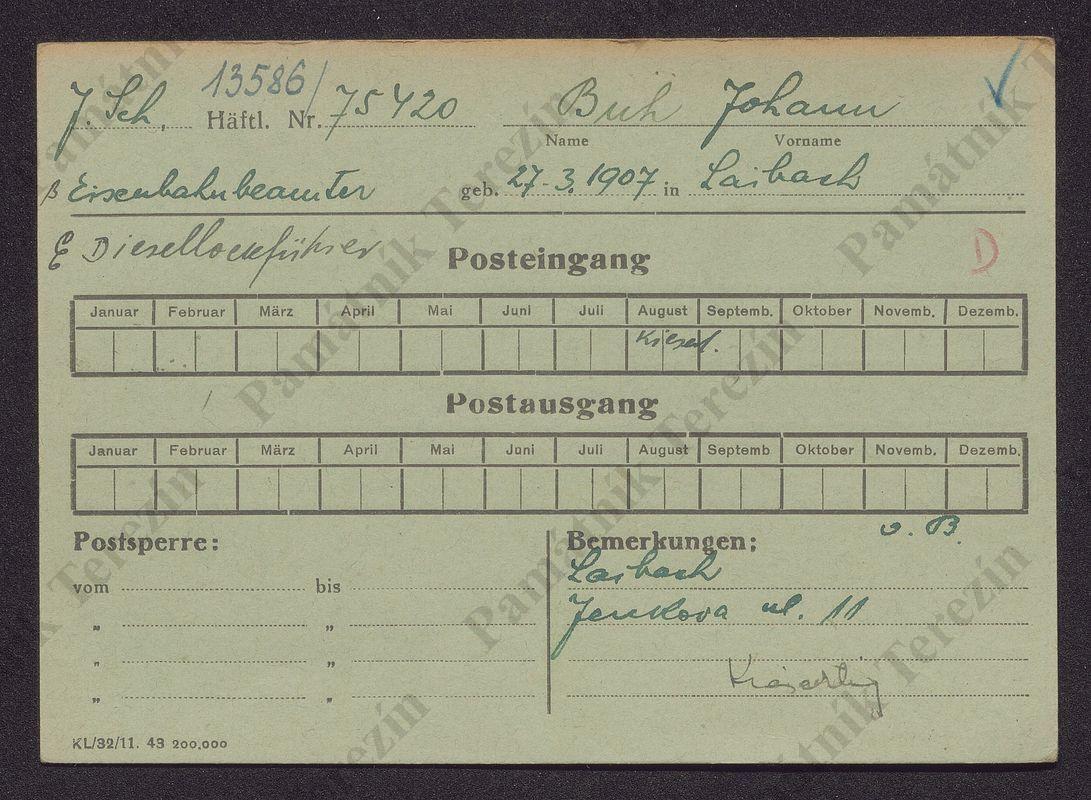 13586/
J. Sch, Häftl. Nr. 75420 Buh Johann
Name Vorname
B Eisenbahnbeamter geb. 27-3.1907 in Laibach
E Diesellockführer
Posteingang
D
Januar Februar März April Mai Juni Juli August Septemb. Oktober Novemb. Dezemb.
Kieserl.
Postausgang
Januar Februar März April Mai Juni Juli August Septemb Oktober Novemb. Dezemb.
Postsperre:
vom bis
" "
" "
" "
Bemerkungen: o. B.
Laibach
Jenkova ul. 11
KL/32/11. 43 200.000
Památník Terezín